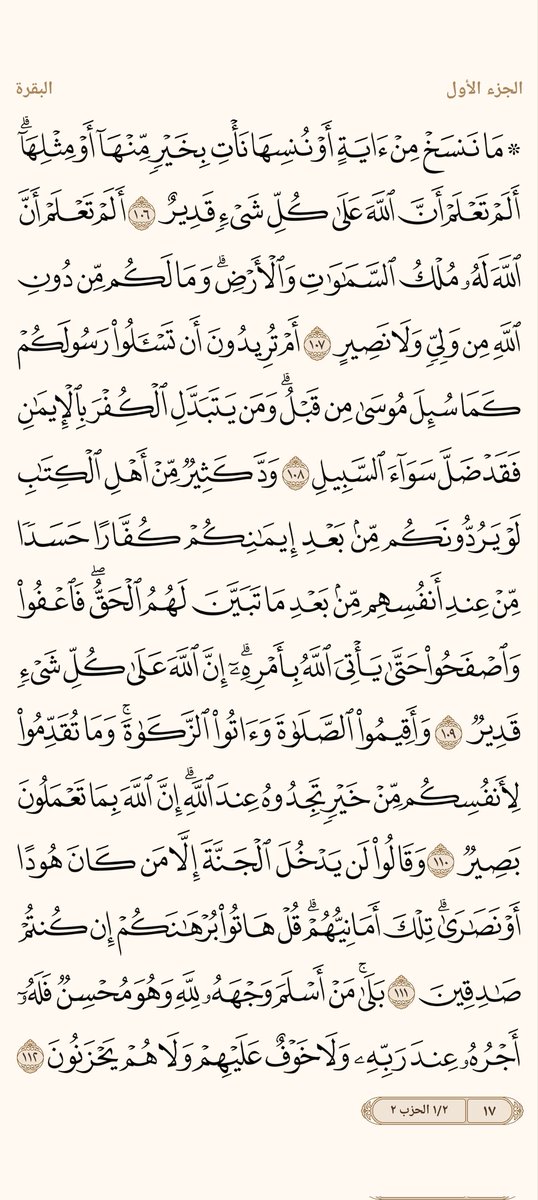 الجزء الأول
البقرة
۞ مَا نَنسَخۡ مِنۡ ءَايَةٍ أَوۡ نُنسِهَا نَأۡتِ بِخَيۡرٖ مِّنۡهَآ أَوۡ مِثۡلِهَآۗ
أَلَمۡ تَعۡلَمۡ أَنَّ ٱللَّهَ عَلَىٰ كُلِّ شَيۡءٖ قَدِيرٌ ١٠٦ أَلَمۡ تَعۡلَمۡ أَنَّ
ٱللَّهَ لَهُۥ مُلۡكُ ٱلسَّمَٰوَٰتِ وَٱلۡأَرۡضِۗ وَمَا لَكُم مِّن دُونِ
ٱللَّهِ مِن وَلِيّٖ وَلَا نَصِيرٍ ١٠٧ أَمۡ تُرِيدُونَ أَن تَسۡـَٔلُواْ رَسُولَكُمۡ
كَمَا سُئِلَ مُوسَىٰ مِن قَبۡلُۗ وَمَن يَتَبَدَّلِ ٱلۡكُفۡرَ بِٱلۡإِيمَٰنِ
فَقَدۡ ضَلَّ سَوَآءَ ٱلسَّبِيلِ ١٠٨ وَدَّ كَثِيرٞ مِّنۡ أَهۡلِ ٱلۡكِتَٰبِ
لَوۡ يَرُدُّونَكُم مِّنۢ بَعۡدِ إِيمَٰنِكُمۡ كُفَّارًا حَسَدٗا
مِّنۡ عِندِ أَنفُسِهِم مِّنۢ بَعۡدِ مَا تَبَيَّنَ لَهُمُ ٱلۡحَقُّۖ فَٱعۡفُواْ
وَٱصۡفَحُواْ حَتَّىٰ يَأۡتِيَ ٱللَّهُ بِأَمۡرِهِۦٓۗ إِنَّ ٱللَّهَ عَلَىٰ كُلِّ شَيۡءٖ
قَدِيرٞ ١٠٩ وَأَقِيمُواْ ٱلصَّلَوٰةَ وَءَاتُواْ ٱلزَّكَوٰةَۚ وَمَا تُقَدِّمُواْ
لِأَنفُسِكُم مِّنۡ خَيۡرٖ تَجِدُوهُ عِندَ ٱللَّهِۗ إِنَّ ٱللَّهَ بِمَا تَعۡمَلُونَ
بَصِيرٞ ١١٠ وَقَالُواْ لَن يَدۡخُلَ ٱلۡجَنَّةَ إِلَّا مَن كَانَ هُودًا
أَوۡ نَصَٰرَىٰۗ تِلۡكَ أَمَانِيُّهُمۡۗ قُلۡ هَاتُواْ بُرۡهَٰنَكُمۡ إِن كُنتُمۡ
صَٰدِقِينَ ١١١ بَلَىٰۚ مَنۡ أَسۡلَمَ وَجۡهَهُۥ لِلَّهِ وَهُوَ مُحۡسِنٞ فَلَهُۥٓ
أَجۡرُهُۥ عِندَ رَبِّهِۦ وَلَا خَوۡفٌ عَلَيۡهِمۡ وَلَا هُمۡ يَحۡزَنُونَ ١١٢
١٧
١/٢ الحزب ٢